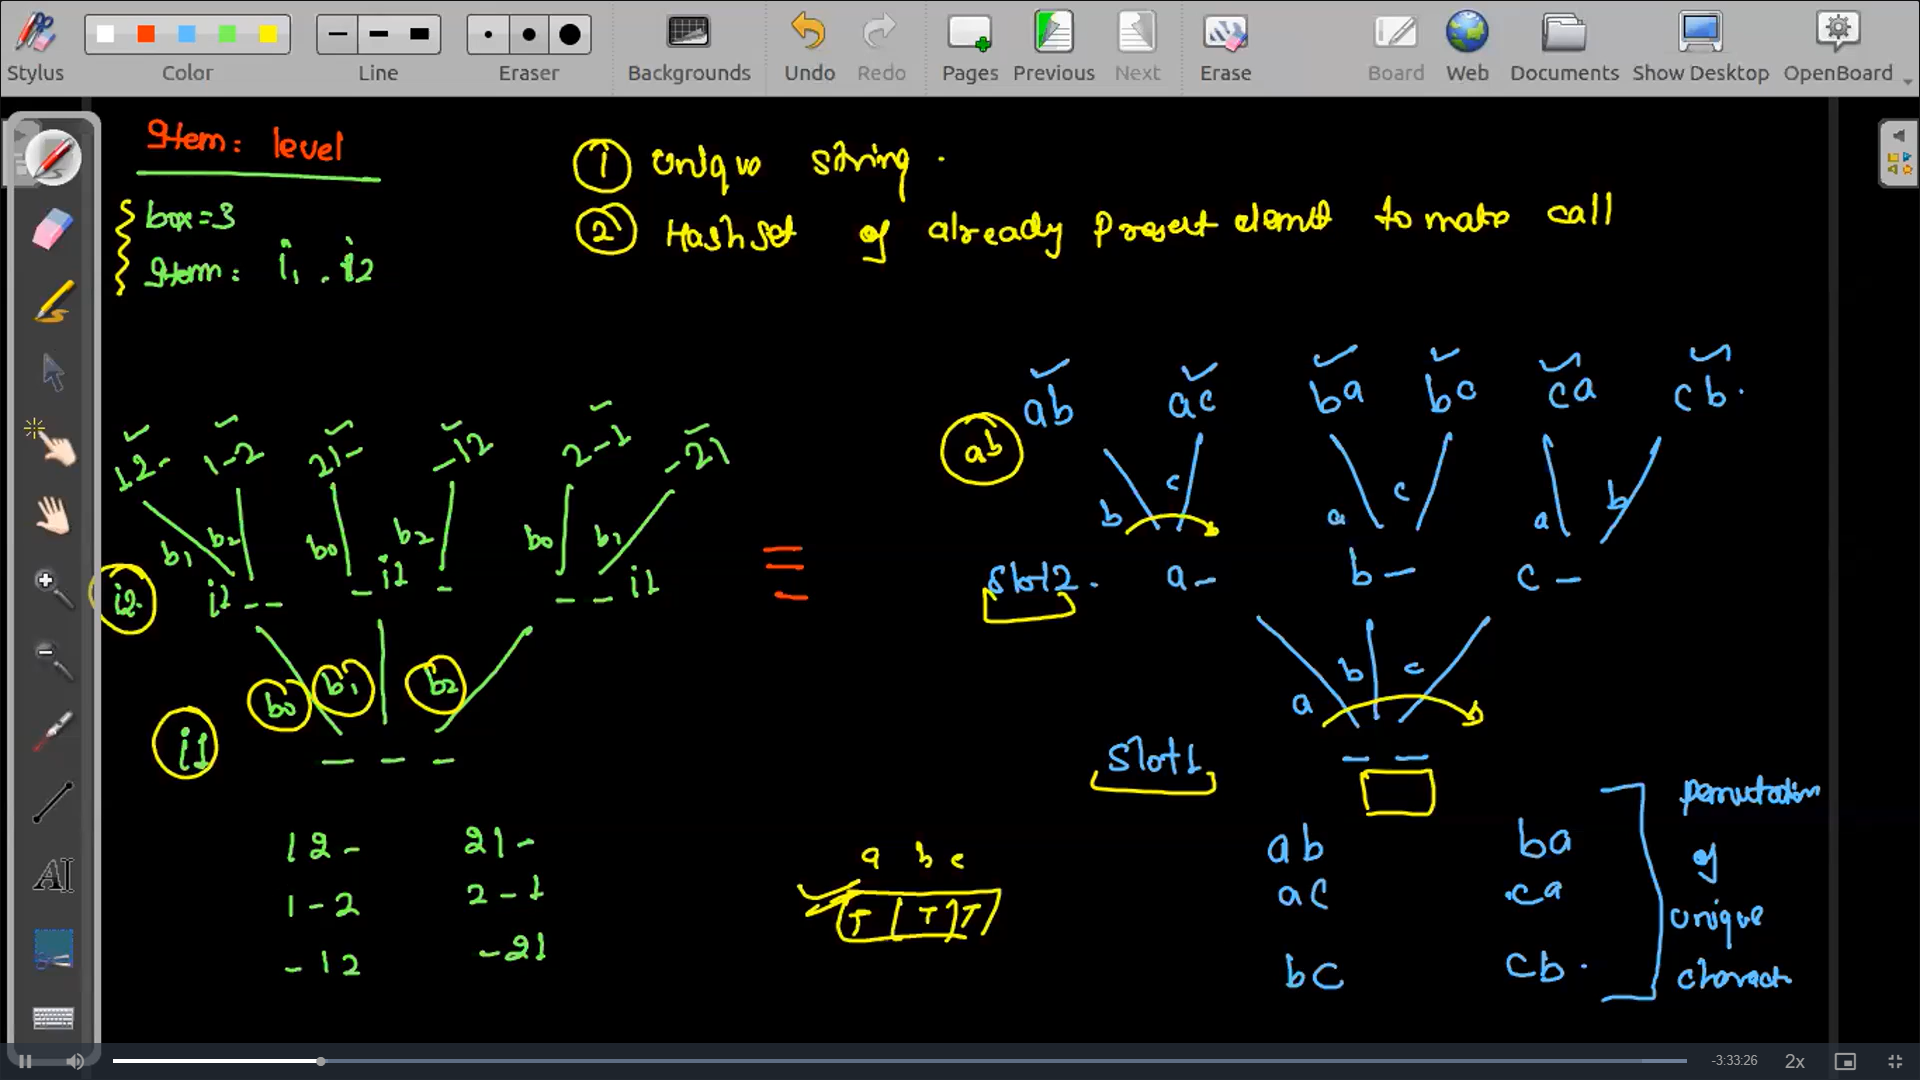 Stylus Color Line Eraser Backgrounds Undo Redo Pages Previous Next Erase Board Web Documents Show Desktop OpenBoard
Item: level
box=3
Item: i1 . i2
1 unique string.
2 Hashset of already present elemt to make call
12- 1-2 21- -12 2-1 -21
b1 b2 b0 b2 b0 b1
i2. i2 -- - i2 - -- i2
b0 b1 b2
i1 - - -
12- 21-
1-2 2-1
-12 -21
≡
a b c
T T T
ab ac ba bc ca cb.
ab
b c a c a b
Slot2. a- b- c-
a b c
Slot1 - -
ab ba
ac ca
bc cb.
permutation
of
unique
charact
-3:33:26 2x